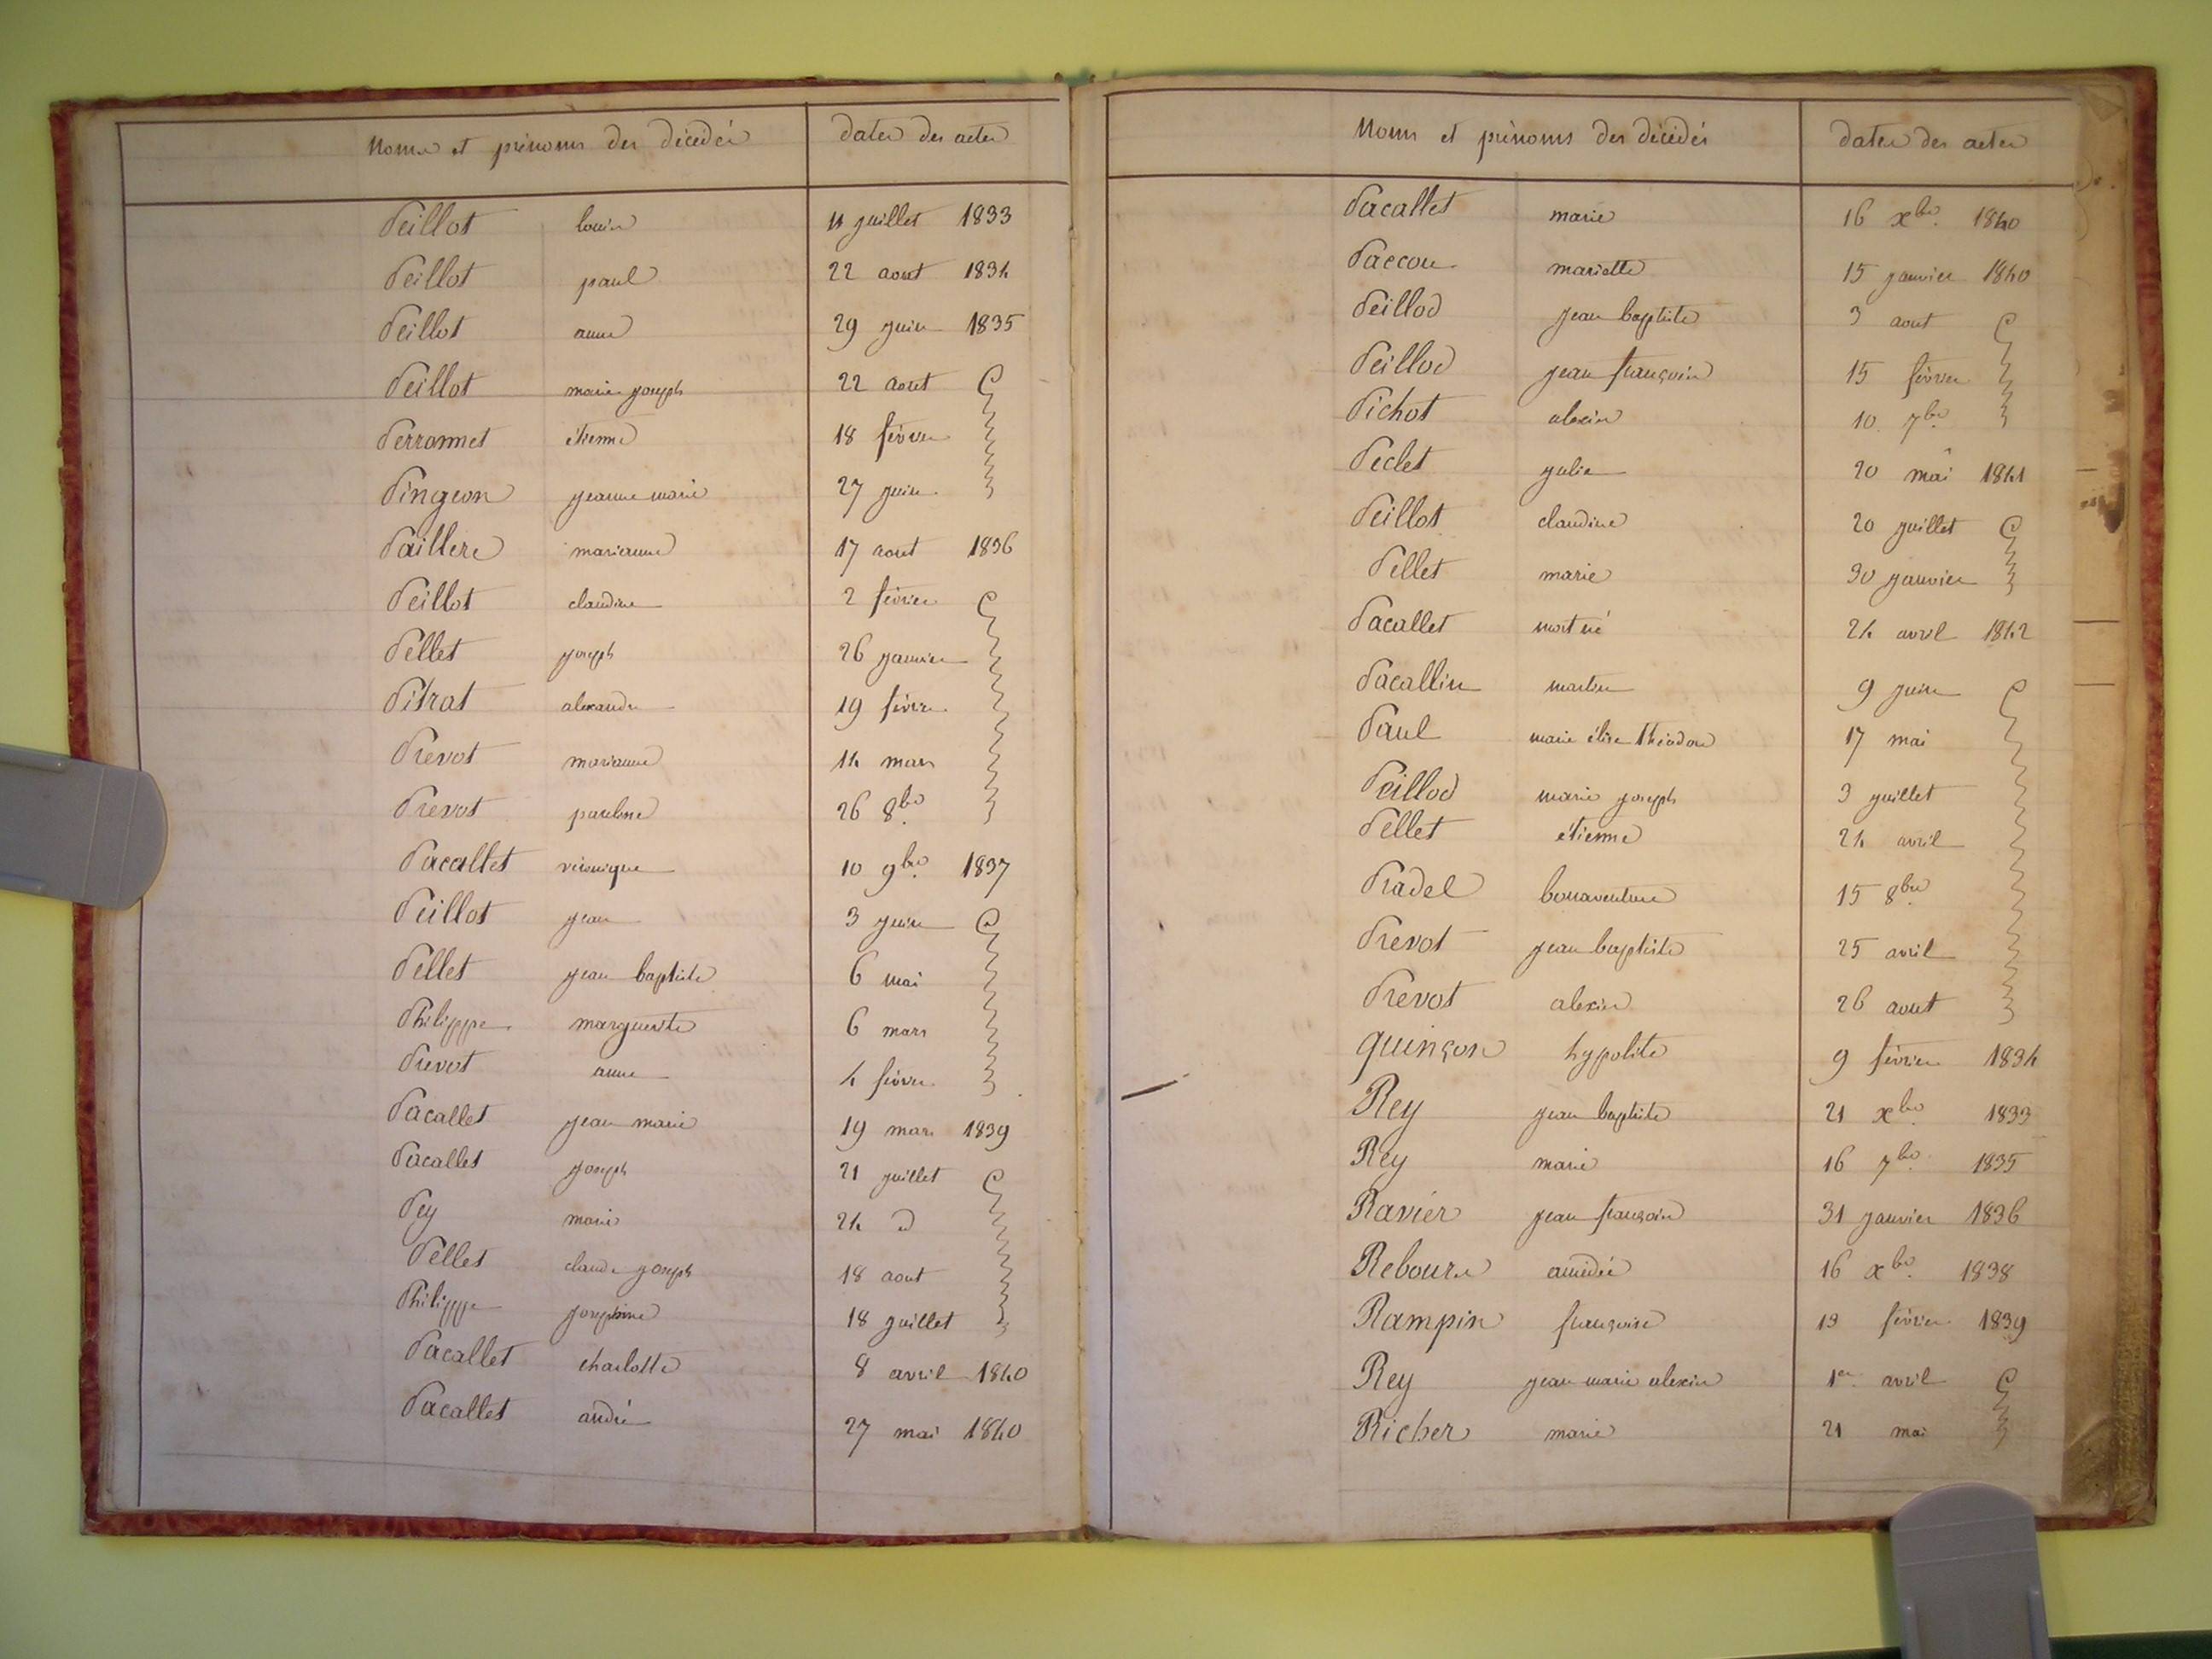 Noms et prénoms des décédés dates des actes
Peillot louis 11 juillet 1833
Peillot paul 22 aout 1834
Peillot anne 29 juin 1835
Peillot marie joseph 22 aout
Perronnet étienne 18 février
Pingeon jeanne marie 27 juin
Paillere marianne 17 aout 1836
Peillot claudine 2 février
Pellet joseph 26 janvier
Pitrat alexandre 19 février
Prevot marianne 14 mars
Prevot pauline 26 8bre
Pacallet véronique 10 9bre 1837
Peillot jean 3 juin
Pellet jean baptiste 6 mai
Philippe marguerite 6 mars
Prevot anne 4 février
Pacallet jean marie 19 mars 1839
Pacallet joseph 21 juillet
Pey marie 24 d
Pellet claude joseph 18 aout
Philippe josephine 18 juillet
Pacallet charlotte 8 avril 1840
Pacallet andré 27 mai 1840
Noms et prénoms des décédés dates des actes
Pacallet marie 16 xbre 1840
Paccou mariette 15 janvier 1840
Peillod jean baptiste 3 aout
Peillod jean françois 15 février
Pichot alexis 10 7bre
Peclet julie 20 mai 1841
Peillot claudine 20 juillet
Pellet marie 30 janvier
Pacallet mort né 24 avril 1842
Pacallin martin 9 juin
Paul marie élise théodore 17 mai
Peillod marie joseph 3 juillet
Pellet étienne 24 avril
Pradel bonaventure 15 8bre
Prevot jean baptiste 25 avril
Prevot alexis 26 aout
quinçon hypolite 9 février 1834
Rey jean baptiste 21 xbre 1833
Rey marie 16 7bre 1835
Ravier jean françois 31 janvier 1836
Rebours amédée 16 xbre 1838
Rampin françoise 19 février 1839
Rey jean marie alexis 1er avril
Richer marie 21 mai